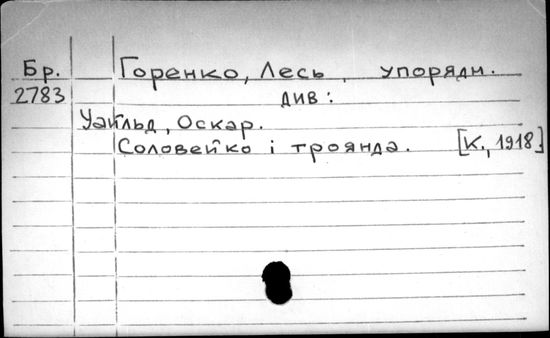 Бр. Горенко, Лесь, упорядн.
2783 див:
Уайльд, Оскар.
Соловейко і троянда. [К., 1918]